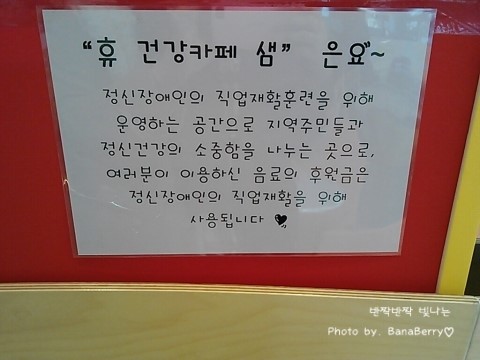 “휴 건강카페 샘” 은요~
정신장애인의 직업재활훈련을 위해
운영하는 공간으로 지역주민들과
정신건강의 소중함을 나누는 곳으로,
여러분이 이용하신 음료의 후원금은
정신장애인의 직업재활을 위해
사용됩니다 ♥
반짝반짝 빛나는
Photo by. BanaBerry♡